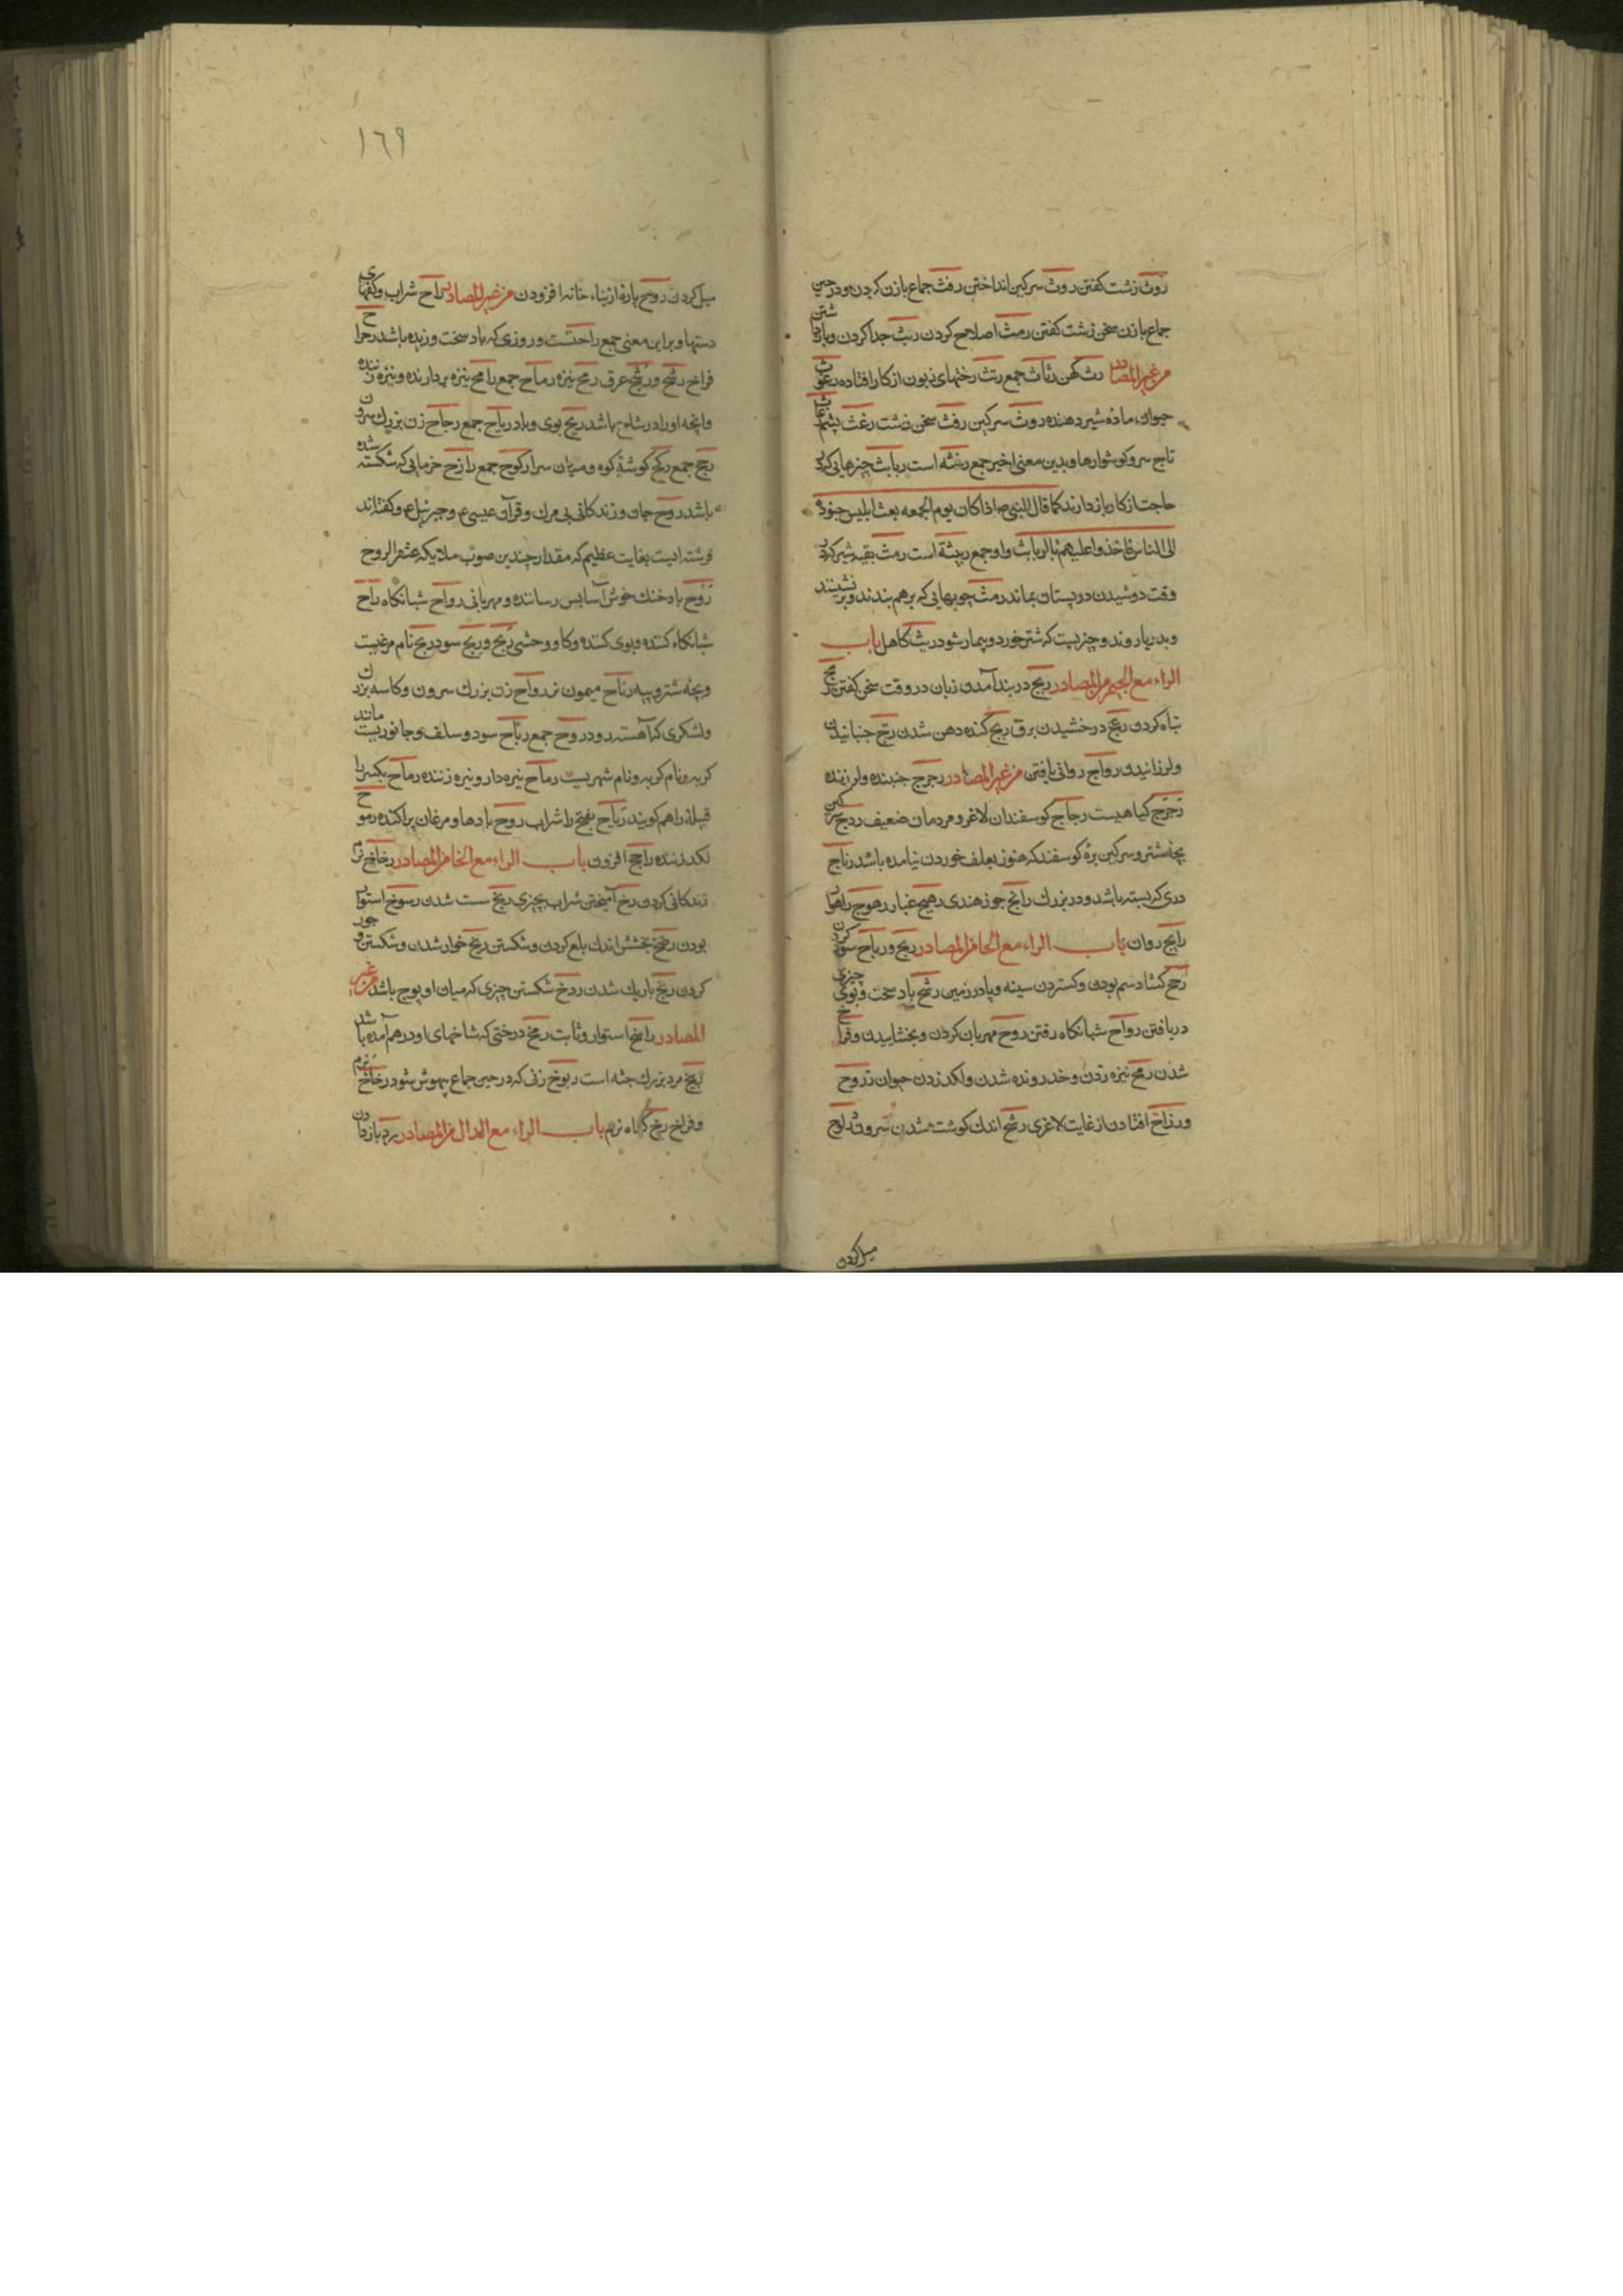 روث زشت کفتن روث سرکین انداختن رفث جماع با زن کردن و در حین
جماع با زن سخن زشت کفتن رمث اصلاح کردن ربث جدا کردن و باز داشتن
من غیر المصادر رث کهن رثاث جمع رتث رختهای زبون از کار افتاده رغوث
حیوان ماده شیر دهنده روث سرکین رفث سخن زشت رغث
تاج سر و کوشوارها و بدین معنی اخیر جمع رعثه است ربایث چیزهایی که از
حاجت از کار باز دارند کما قال النبی ص اذا کان یوم الجمعه بعث ابلیس جنوده
الی الناس فاخذوا علیهم بالربایث و او جمع ربیثة است رمث بقیه شیر که در
وقت دوشیدن در پستان بماند رمث چوبهایی که بر هم بندند و بر نشینند
و بدریا روند و چیزیست که شتر خورد و بیمار شود ریث کاهل باب
الراء مع الجیم من المصادر رتج در بند آمدن زبان در وقت سخن کفتن
تباه کردن رعج درخشیدن برق ریج کنده دهن شدن رج جنبانیدن
و لرزانیدن رواج روانی یافتن من غیر المصادر رجرج جنبنده و لرزنده
رجرج کیاهیست رجاج کوسفندان لاغر و مردمان ضعیف ردج سرکین
بچه شتر و سرکین بره کوسفند که هنوز بعلف خوردن نیامده باشد رتاج
دری که بسته باشد و در بزرك رانج جوز هندی رهج غبار رهوج راهوار
رایج روان باب الراء مع الحا من المصادر ربح و رباح سود کردن
رحح کشاد سم بودن و کستردن سینه و پا در زمین باد سخت و بوی چیزی
دریافتن رواح شبانکاه رفتن روح مهربان کردن و بخشاییدن و فراخ
شدن رمح نیزه زدن و خدر ونده شدن و لکد زدن حیوان رزوح
و رزاح افتادن از غایت لاغری رشح اندك کوشت شدن سرون
میل کردن
١٦٩
میل کردن روح پارۀ از بناء خانه افزودن من غیر المصادر راح شراب و کفهای
دستها و براین معنی جمع راحتست و روزی که باد سخت وزیده باشد رحراح
فراخ رشح و رشیح عرق رمح نیزه رماح جمع رامح نیزه بردارنده و نیزه زننده
و انچه او را در شاخ باشد ریح بوی و باد ریاح جمع رجاح زن بزرك سرون
رجح جمع رکح کوشۀ کوه و میان سرا رکوح جمع رازح خرمایی که شکسته شده
باشد روح جان و زندکانی بی مرك و قرآن عیسی ع و جبرئیل ع و کفته اند
فرشته ایست بغایت عظیم که مقدار چندین صوب ملایکه عشر الروح
روح باد خنك خوش آسایش رساننده و مهربانی رواح شبانکاه راح
شبانکاه کننده و بوی کننده و کاو وحشی ربح و ربح سود ربح نام مرغیست
و بچه شتر و پیه رباح میمون نر رداح زن بزرك سرون و کاسه بزرك
و لشکری که آهسته رود ردح جمع رباح سود و سلف و جانوریست مانند
کربه و نام کربه و نام شهریست رماح نیزه دار و نیزه زننده رماح بکسر را
قبیله را هم کویند ریاح بفتح را شراب روح بادها و مرغان پراکنده رموح
لکد زننده راجح افزون باب الراء مع الخا من المصادر رخاخ نرم
زندکانی کردن رخ آمیختن شراب بچیزی ریخ سست شدن رسوخ استوار
بودن رضخ بخشش اندك بلع کردن و شکستن ریخ خوار شدن و شکستن و جور
کردن ربخ باریك شدن ردخ شکستن چیزی که میان او پوچ باشد من غیر
المصادر راسخ استوار و ثابت رمخ درختی که شاخهای او درهم آمده باشد
ربیخ مرد بزرك جثه است ربوخ زنی که در حین جماع بیهوش شود رخاخ نرم
و فراخ رخ کیاه نرم باب الراء مع الدال من المصادر رد باز دادن